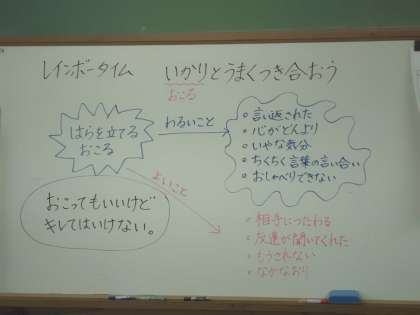 レインボータイム　いかりとうまくつき合おう
おこる
はらを立てる
おこる
わるいこと
・言い返された
・心がどんより
・いやな気分
・ちくちく言葉の言い合い
・おしゃべりできない
よいこと
おこってもいいけど
キレてはいけない。
・相手につたわる
・友達が聞いてくれた
・もうされない
・なかなおり